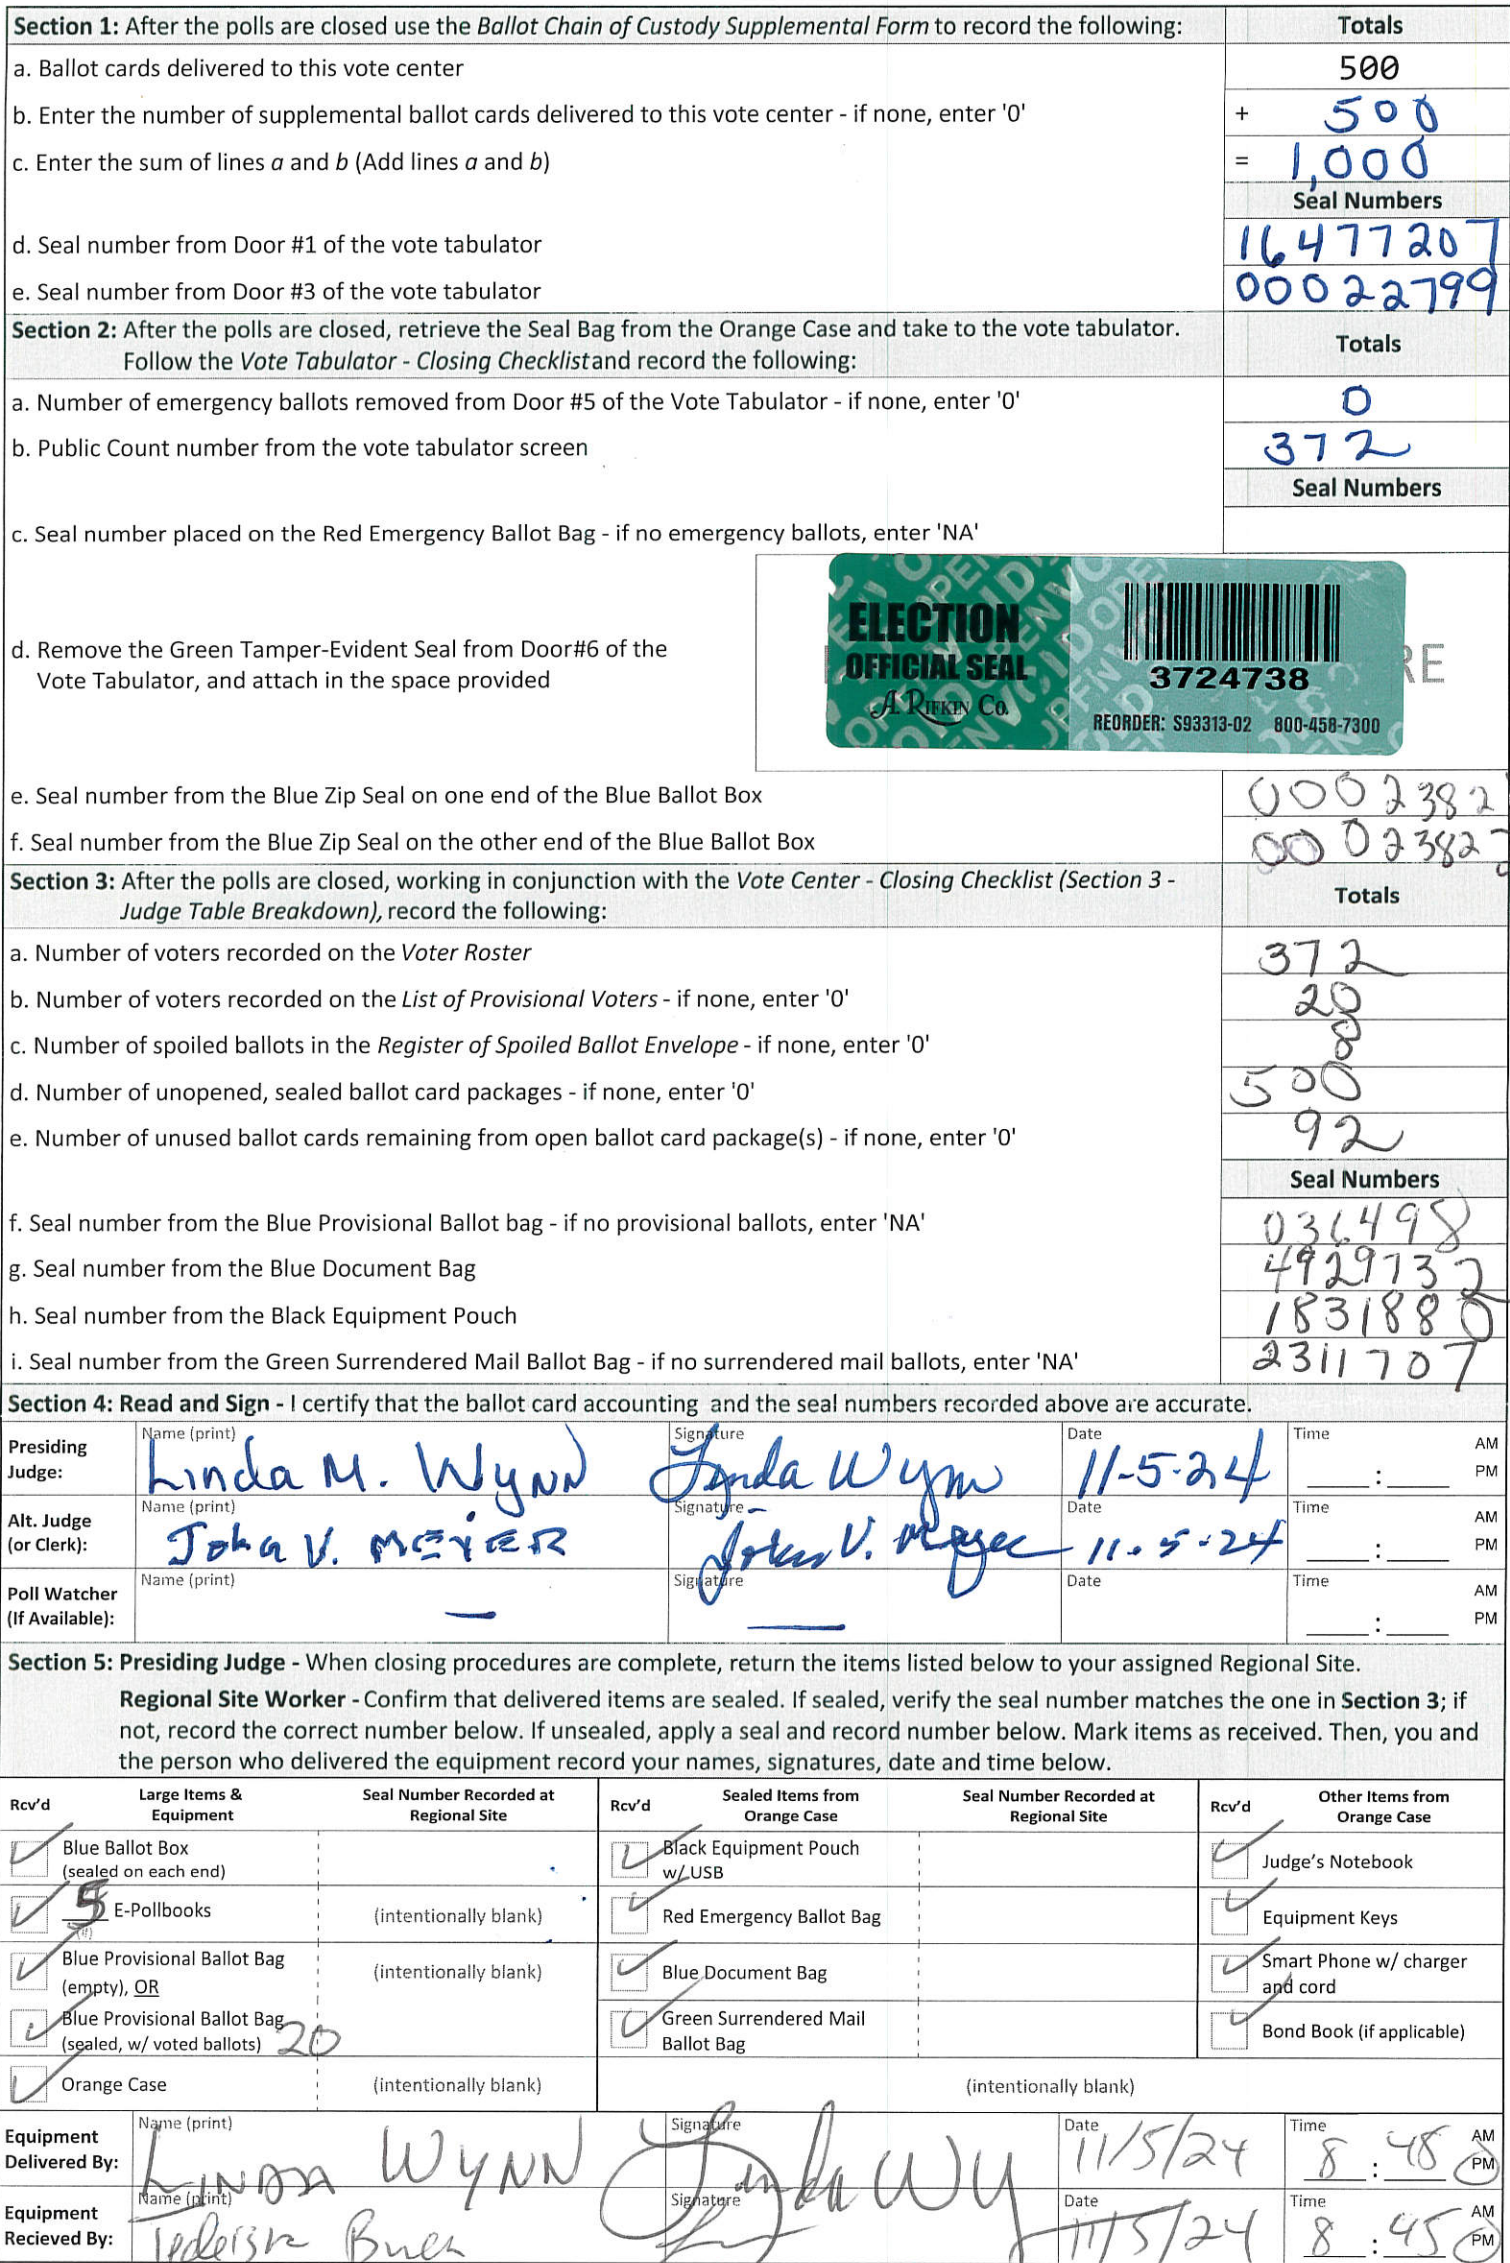 Section 1: After the polls are closed use the Ballot Chain of Custody Supplemental Form to record the following: Totals
a. Ballot cards delivered to this vote center 500
b. Enter the number of supplemental ballot cards delivered to this vote center - if none, enter '0' + 500
c. Enter the sum of lines a and b (Add lines a and b) = 1,000
Seal Numbers
d. Seal number from Door #1 of the vote tabulator 16477207
e. Seal number from Door #3 of the vote tabulator 00022799
Section 2: After the polls are closed, retrieve the Seal Bag from the Orange Case and take to the vote tabulator.
Follow the Vote Tabulator - Closing Checklist and record the following: Totals
a. Number of emergency ballots removed from Door #5 of the Vote Tabulator - if none, enter '0' 0
b. Public Count number from the vote tabulator screen 372
Seal Numbers
c. Seal number placed on the Red Emergency Ballot Bag - if no emergency ballots, enter 'NA'
d. Remove the Green Tamper-Evident Seal from Door#6 of the
Vote Tabulator, and attach in the space provided
ELECTION
OFFICIAL SEAL
A. RIFKIN CO.
3724738
REORDER: S93313-02 800-458-7300
RE
e. Seal number from the Blue Zip Seal on one end of the Blue Ballot Box 0002382
f. Seal number from the Blue Zip Seal on the other end of the Blue Ballot Box
Section 3: After the polls are closed, working in conjunction with the Vote Center - Closing Checklist (Section 3 -
Judge Table Breakdown), record the following: Totals
a. Number of voters recorded on the Voter Roster 372
b. Number of voters recorded on the List of Provisional Voters - if none, enter '0' 20
c. Number of spoiled ballots in the Register of Spoiled Ballot Envelope - if none, enter '0' 8
d. Number of unopened, sealed ballot card packages - if none, enter '0' 500
e. Number of unused ballot cards remaining from open ballot card package(s) - if none, enter '0' 92
Seal Numbers
f. Seal number from the Blue Provisional Ballot bag - if no provisional ballots, enter 'NA' 036498
g. Seal number from the Blue Document Bag 4929732
h. Seal number from the Black Equipment Pouch 1831880
i. Seal number from the Green Surrendered Mail Ballot Bag - if no surrendered mail ballots, enter 'NA' 2311707
Section 4: Read and Sign - I certify that the ballot card accounting and the seal numbers recorded above are accurate.
Presiding Judge: Name (print) Linda M. Wynn Signature Linda Wynn Date 11-5-24 Time : AM PM
Alt. Judge (or Clerk): Name (print) John V. MEYER Signature John V. Meyer Date 11-5-24 Time : AM PM
Poll Watcher (If Available): Name (print) — Signature — Date Time : AM PM
Section 5: Presiding Judge - When closing procedures are complete, return the items listed below to your assigned Regional Site.
Regional Site Worker - Confirm that delivered items are sealed. If sealed, verify the seal number matches the one in Section 3; if
not, record the correct number below. If unsealed, apply a seal and record number below. Mark items as received. Then, you and
the person who delivered the equipment record your names, signatures, date and time below.
Rcv'd Large Items & Equipment Seal Number Recorded at Regional Site Rcv'd Sealed Items from Orange Case Seal Number Recorded at Regional Site Rcv'd Other Items from Orange Case
Blue Ballot Box (sealed on each end) Black Equipment Pouch w/USB Judge's Notebook
5 E-Pollbooks (#) (intentionally blank) Red Emergency Ballot Bag Equipment Keys
Blue Provisional Ballot Bag (empty), OR (intentionally blank) Blue Document Bag Smart Phone w/ charger and cord
Blue Provisional Ballot Bag (sealed, w/ voted ballots) 20 Green Surrendered Mail Ballot Bag Bond Book (if applicable)
Orange Case (intentionally blank) (intentionally blank)
Equipment Delivered By: Name (print) LINDA WYNN Signature Linda Wy Date 11/5/24 Time 8:48 AM PM
Equipment Recieved By: Name (print) Signature Date 11/5/24 Time 8:45 AM PM